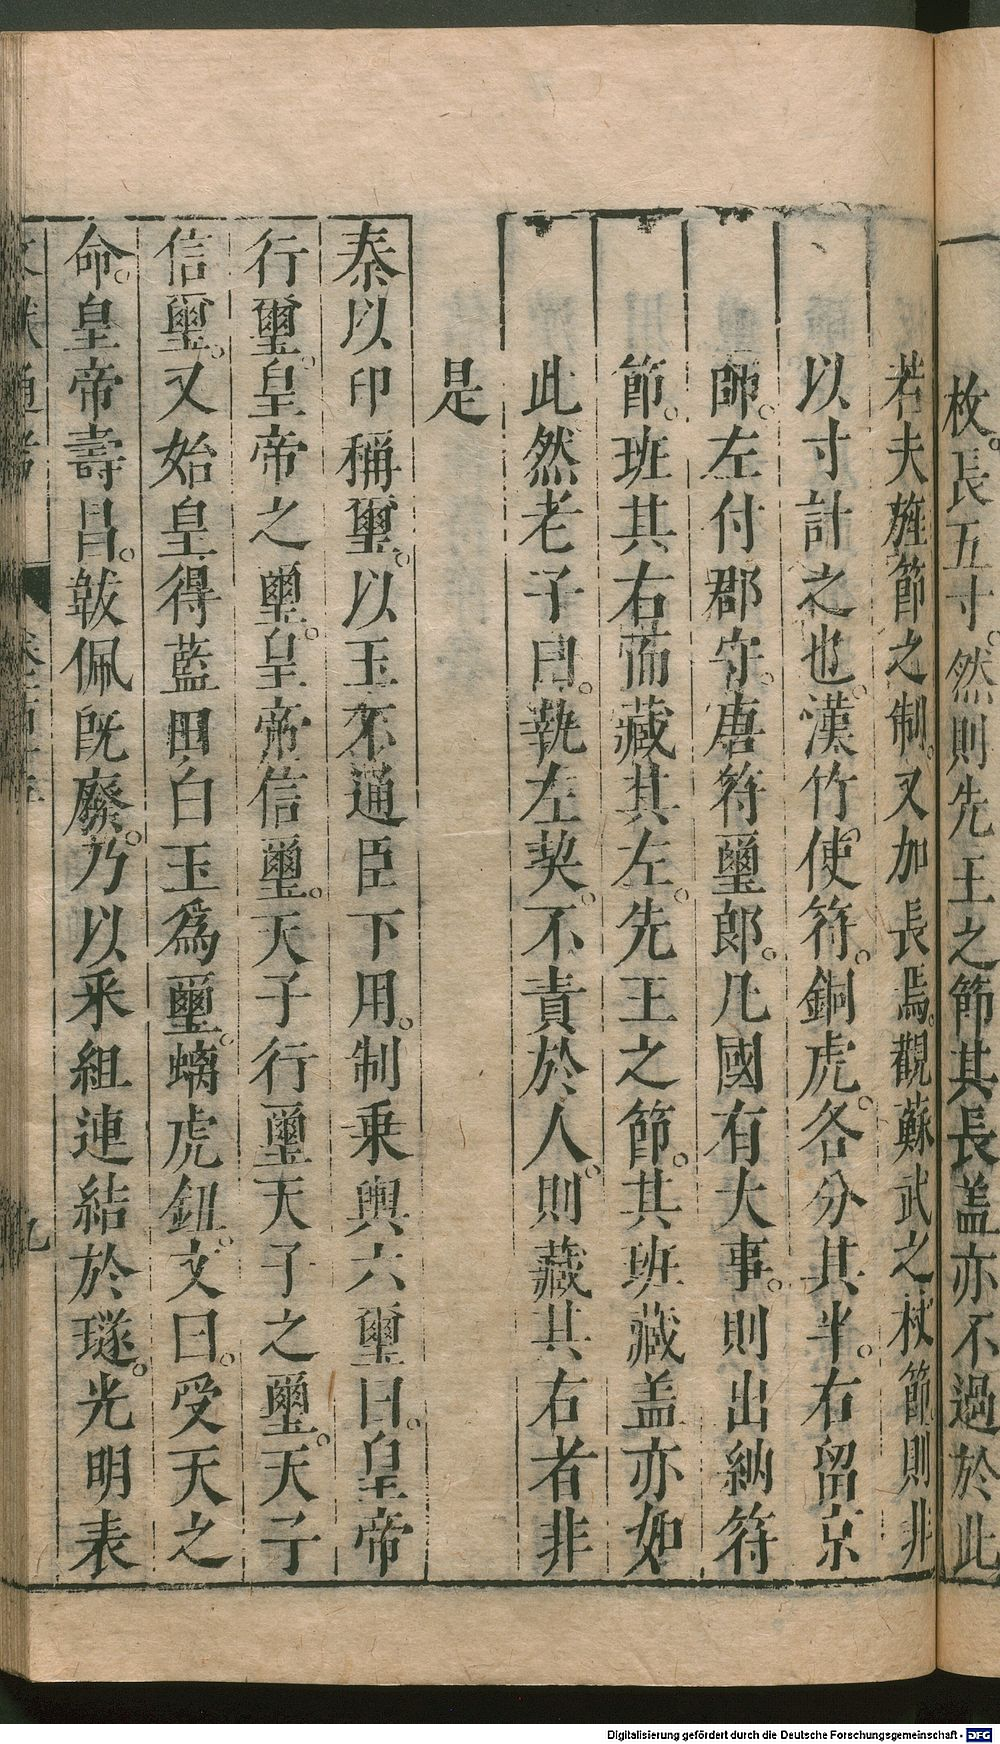 枚。長五寸。然則先王之節其長盖亦不過於此
若夫旌節之制。又加長焉。觀蘇武之杖節則非
以寸計之也。漢竹使符。銅虎。各分其半。右留京
師。左付郡守。唐符璽郎。凡國有大事。則出納符
節。班其右而藏其左。先王之節。其班藏盖亦如
此然老子曰。執左契。不責於人。則藏其右者非
是
秦以印稱璽。以玉不通臣下用。制乗輿六璽曰。皇帝
行璽。皇帝之璽。皇帝信璽。天子行璽天子之璽。天子
信璽。又始皇得藍田白玉為璽。螭虎鈕。文曰。受天之
命。皇帝壽昌。韍佩既廢。乃以采組連結於璲。光明表
通考
九
Digitalisierung gefördert durch die Deutsche Forschungsgemeinschaft - DFG